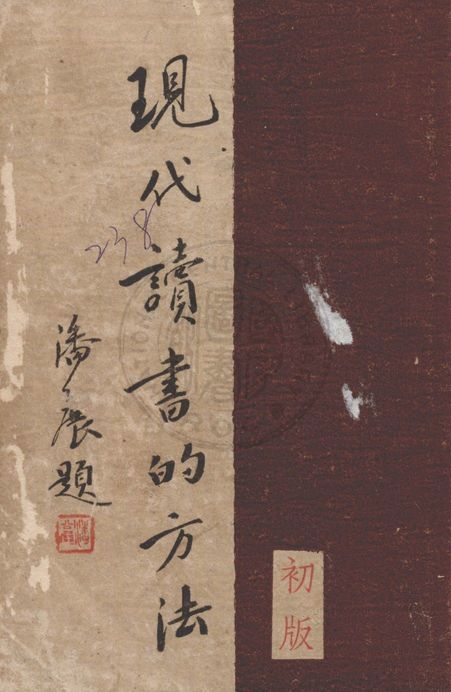 現代讀書的方法
238
潘公展題
初版